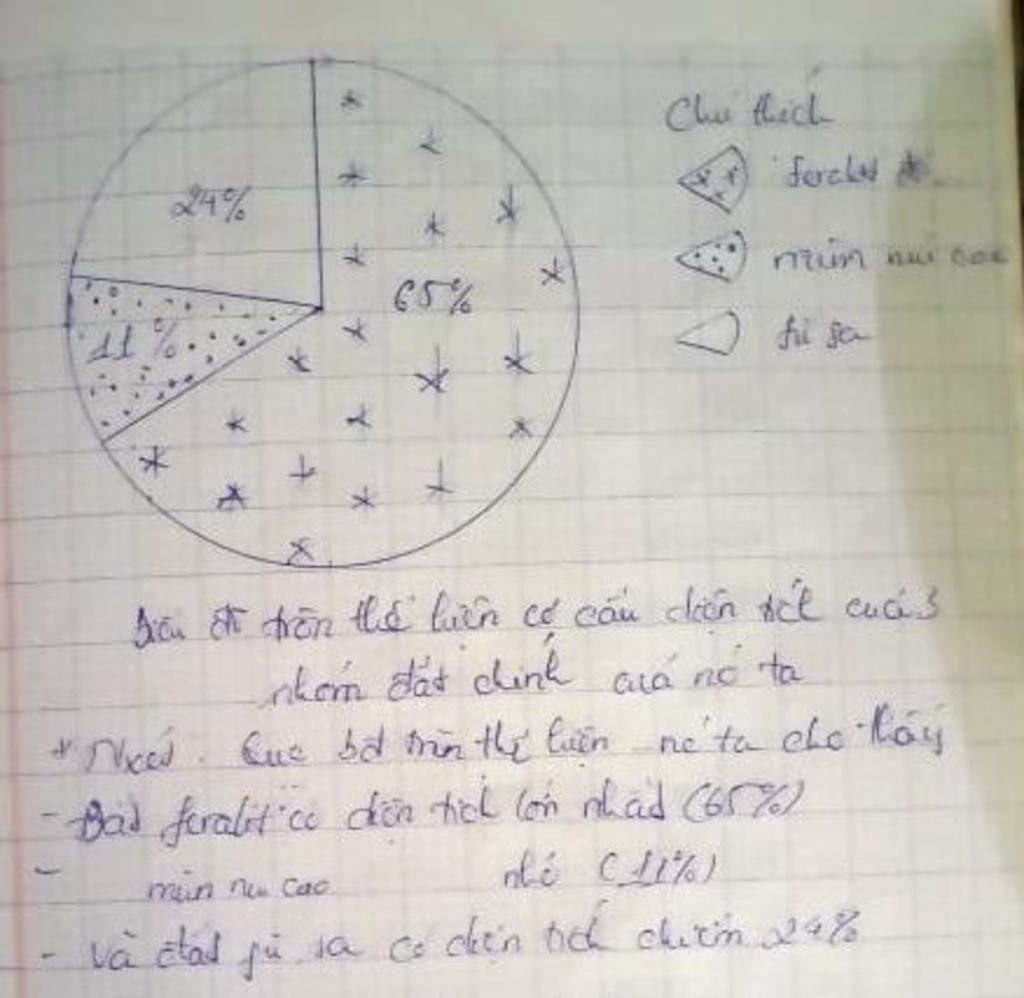 Chú thích
24%
feralit
65%
mùn núi cao
11%
fù sa
trên thể hiện cơ cấu diện tích của 3
nhóm đất chính của nc ta
+ Nxét. trên thể hiện nc ta cho thấy
- Đất feralit có diện tích lớn nhất (65%)
- mùn núi cao nhỏ (11%)
- và đất fù sa có diện tích chiếm 24%